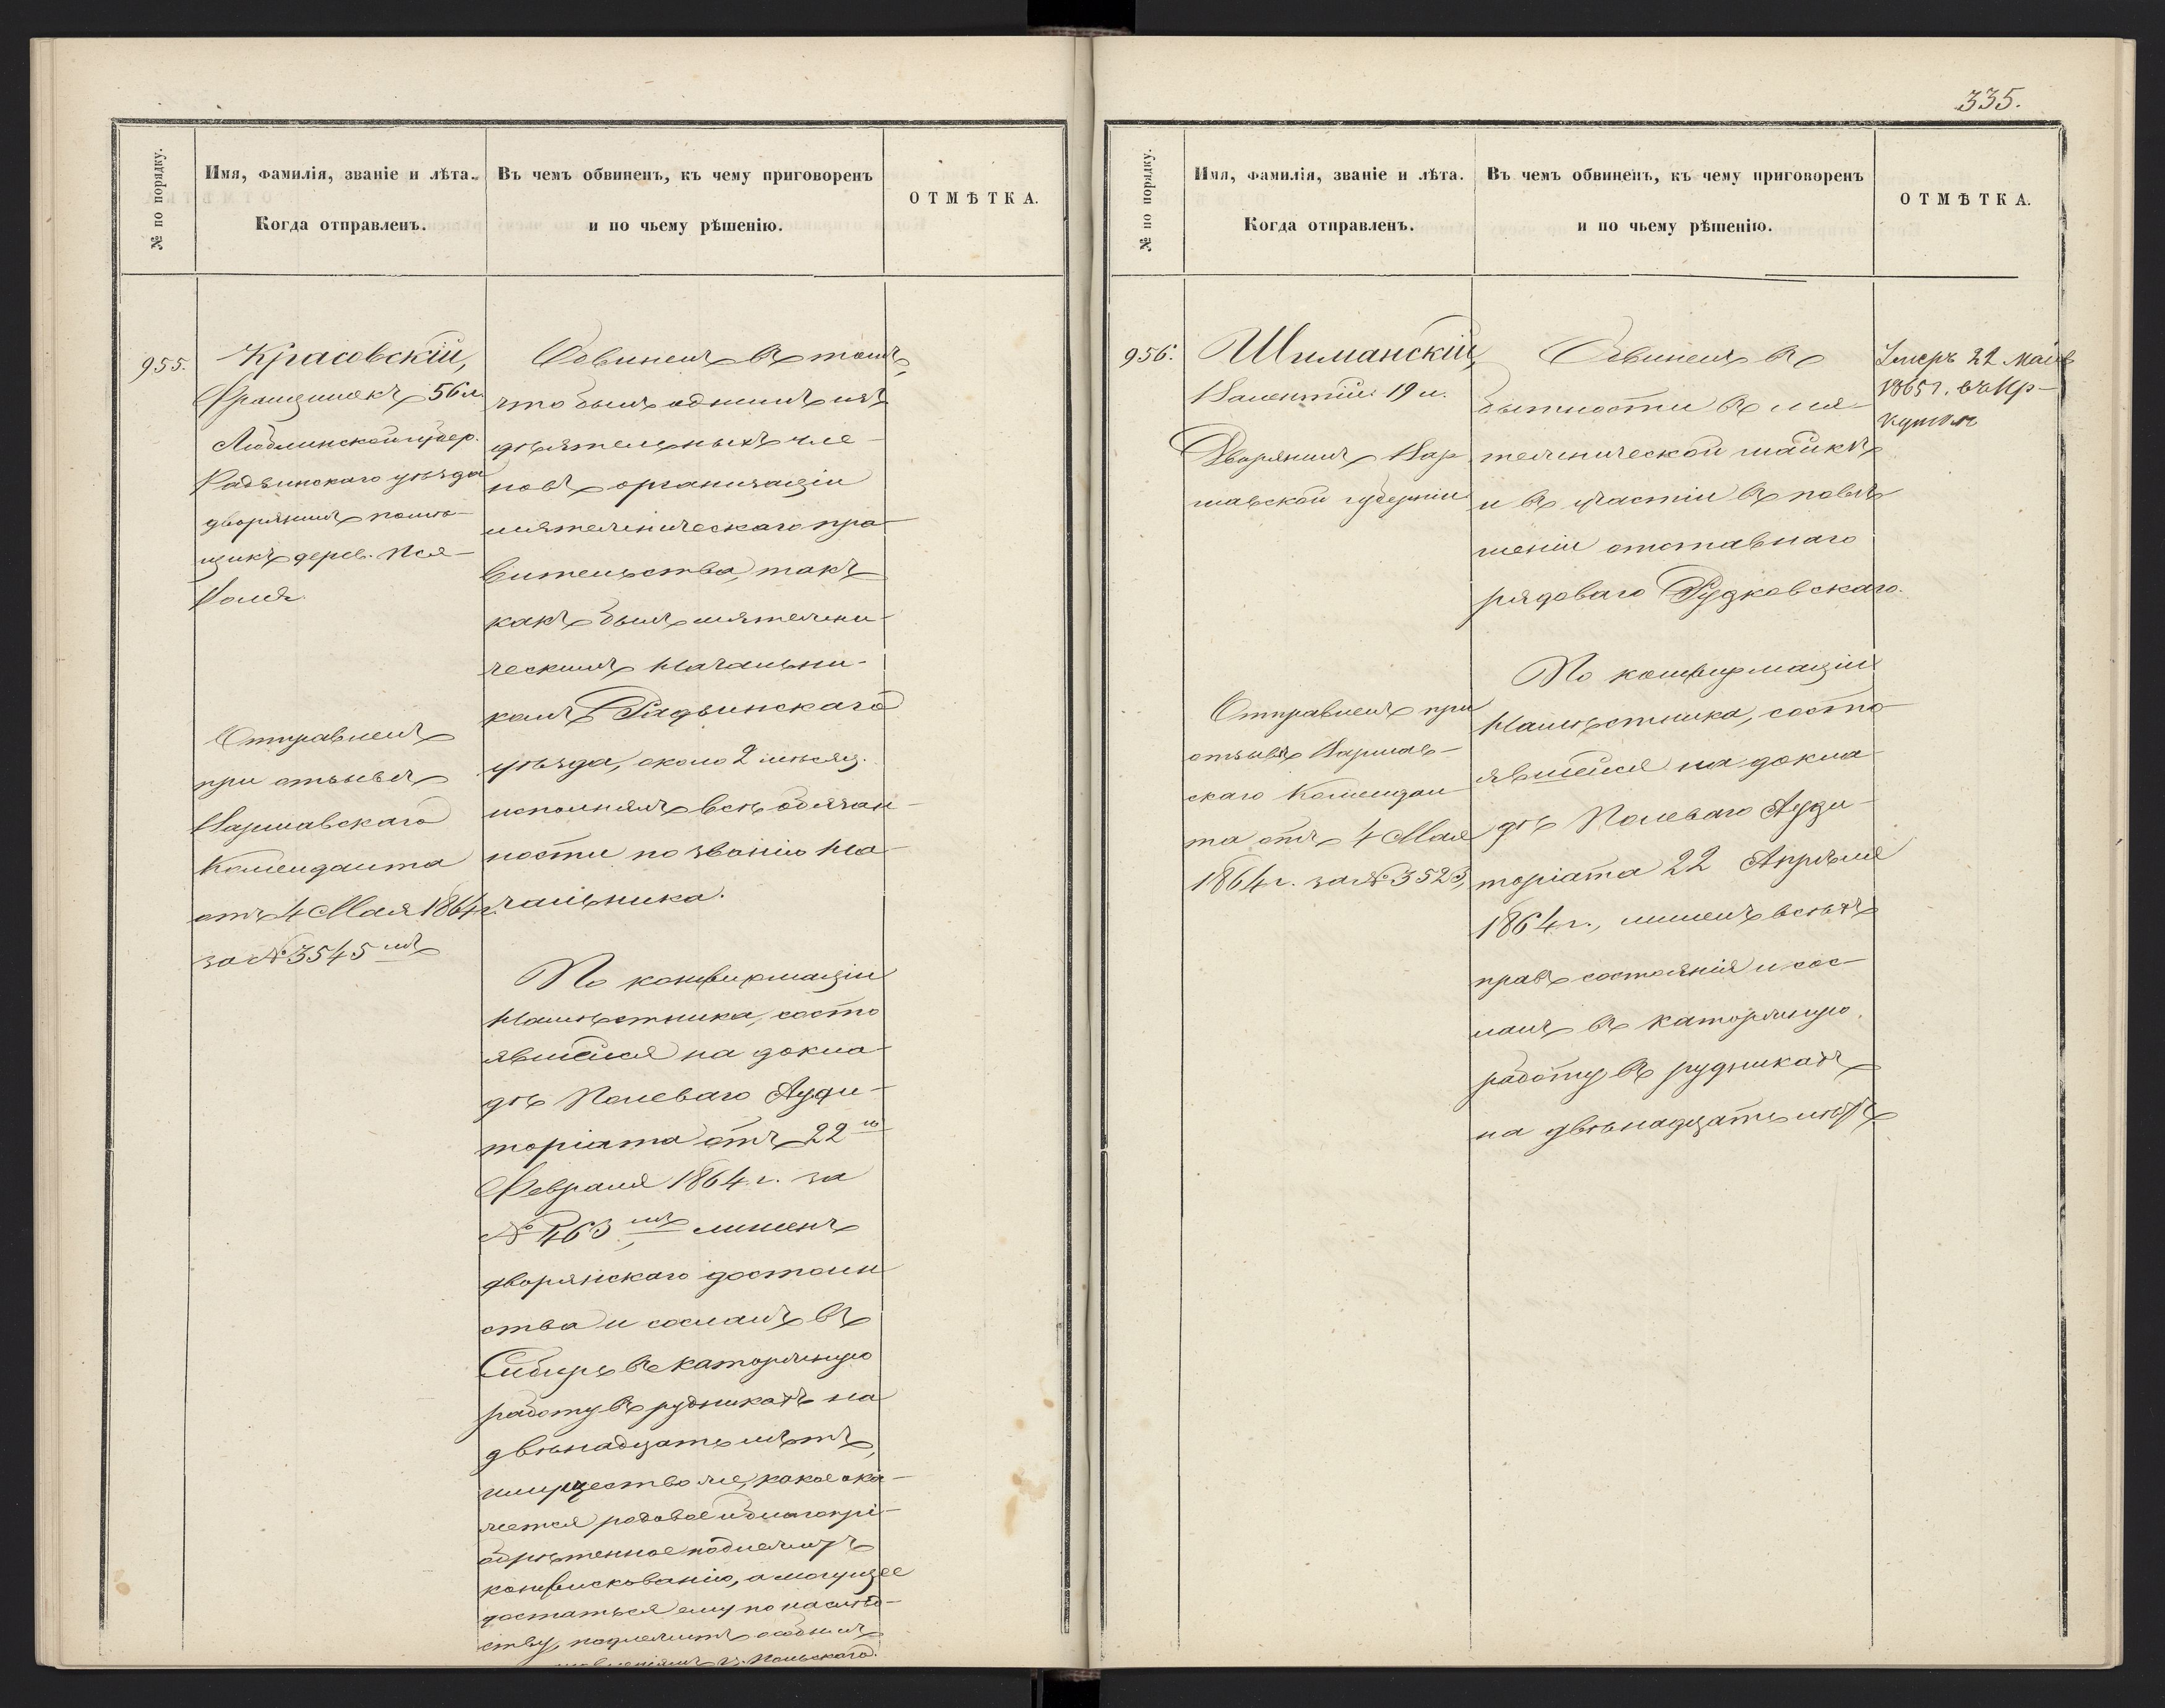 № по порядку.
Имя, фамилія, званіе и лѣта.
Когда отправленъ.
Въ чемъ обвиненъ, къ чему приговоренъ
и по чьему рѣшенію.
ОТМѢТКА.
955.
Красовскій,
Францишекъ 56 л.
Люблинской губер.
Радзинскаго уѣзда
дворянинъ помѣ-
щикъ дерев.
Отправленъ
при отзывѣ
Варшавскаго
Коменданта
отъ 4 Мая 1864 г.
за № 3545мъ
Обвиненъ въ томъ,
что былъ однимъ изъ
дѣятельныхъ чле-
новъ организаціи
мятежническаго пра-
вительства, такъ
какъ былъ мятежни-
ческимъ Начальни-
комъ Радзинскаго
уѣзда, около 2 мѣсяц.
исполнялъ всѣ обязан-
ности по званію На-
чальника.
По конфирмаціи
Намѣстника, состо
явшейся на докла-
дѣ Полеваго Ауди-
торіата отъ 22го
Февраля 1864 г. за
№ 463мъ, лишенъ
дворянскаго достоин
ства и сосланъ въ
Сибирь въ каторжную
работу въ рудникахъ на
двѣнадцать лѣтъ,
имущество же, какое ока-
жется родовое и благопрі-
обрѣтенное подлежитъ
конфискованію, а могущее
достаться ему по наслѣд-
ству, подлежитъ особымъ
Польскаго.
335.
№ по порядку.
Имя, фамилія, званіе и лѣта.
Когда отправленъ.
Въ чемъ обвиненъ, къ чему приговоренъ
и по чьему рѣшенію.
ОТМѢТКА.
956.
Шиманскій,
Валентій 19 л.
Дворянинъ Вар-
шавской губерніи
Отправленъ при
отзывѣ Варшав-
скаго Комендан-
та отъ 4 Мая
1864 г. за № 3523,
Обвиненъ въ
бытности въ мя-
тежнической шайкѣ
и въ участіи въ повѣ-
шеніи отставнаго
рядоваго Рудковскаго.
По конфирмаціи
Намѣстника, состо-
явшейся на докла-
дѣ Полеваго Ауди-
торіата 22 Апрѣля
1864 г., лишенъ всѣхъ
правъ состоянія и сос-
ланъ въ каторжную
работу въ рудникахъ
на двѣнадцать лѣтъ
Умеръ 22 Мая
1865 г. въ Ир-
кутск